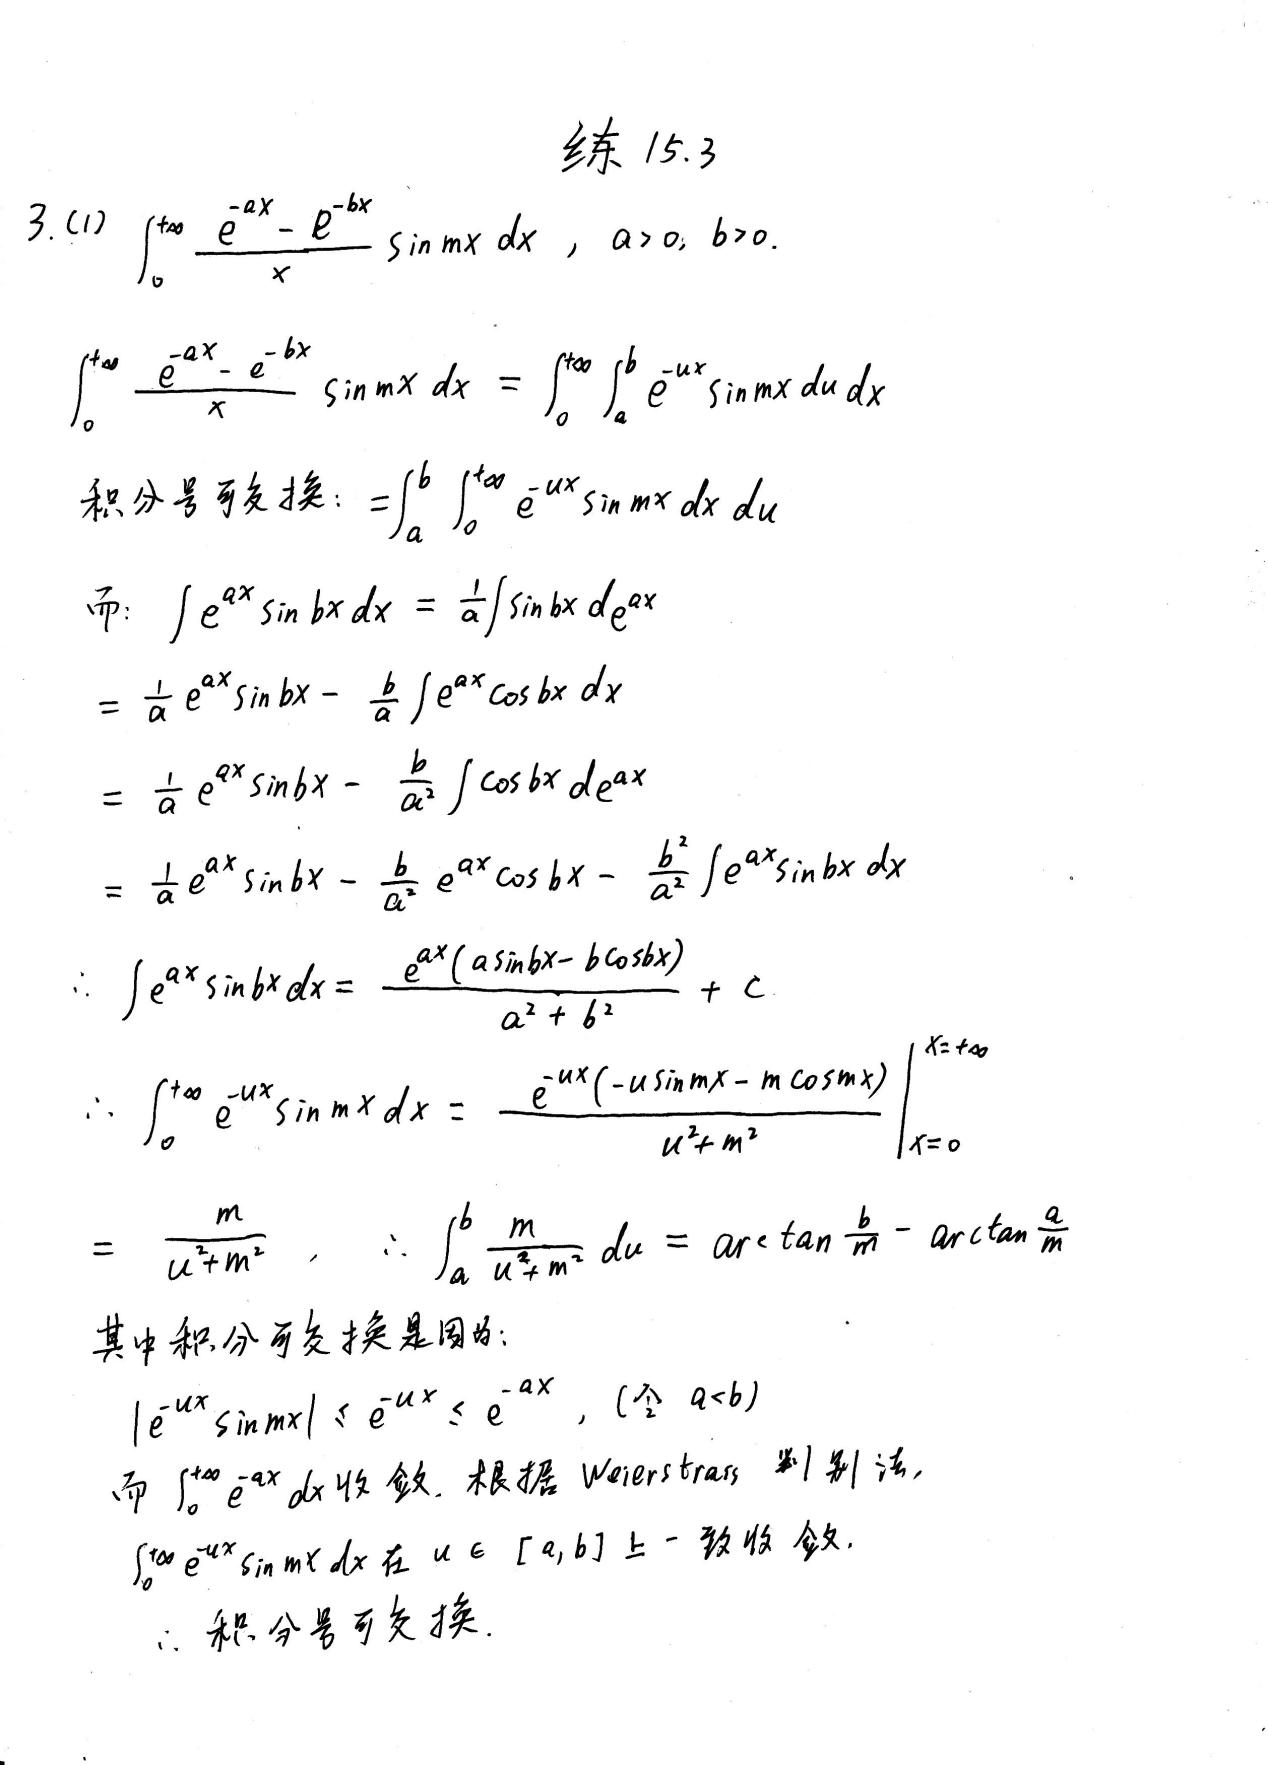 练 15.3
3.(1) ∫₀^{+∞} \frac{e^{-ax} - e^{-bx}}{x} sin mx dx , a>0, b>0.
∫₀^{+∞} \frac{e^{-ax} - e^{-bx}}{x} sin mx dx = ∫₀^{+∞} ∫_a^b e^{-ux} sin mx du dx
积分号可交换: = ∫_a^b ∫₀^{+∞} e^{-ux} sin mx dx du
而: ∫ e^{ax} sin bx dx = \frac{1}{a} ∫ sin bx de^{ax}
= \frac{1}{a} e^{ax} sin bx - \frac{b}{a} ∫ e^{ax} cos bx dx
= \frac{1}{a} e^{ax} sin bx - \frac{b}{a²} ∫ cos bx de^{ax}
= \frac{1}{a} e^{ax} sin bx - \frac{b}{a²} e^{ax} cos bx - \frac{b²}{a²} ∫ e^{ax} sin bx dx
∴ ∫ e^{ax} sin bx dx = \frac{e^{ax}(a sin bx - b cos bx)}{a² + b²} + C
∴ ∫₀^{+∞} e^{-ux} sin mx dx = \frac{e^{-ux}(-u sin mx - m cos mx)}{u² + m²} |_{x=0}^{x=+∞}
= \frac{m}{u² + m²} , ∴ ∫_a^b \frac{m}{u² + m²} du = arctan \frac{b}{m} - arctan \frac{a}{m}
其中积分可交换是因为:
|e^{-ux} sin mx| ≤ e^{-ux} ≤ e^{-ax} , (令 a<b)
而 ∫₀^{+∞} e^{-ax} dx 收敛. 根据 Weierstrass 判别法,
∫₀^{+∞} e^{-ux} sin mx dx 在 u ∈ [a,b] 上一致收敛.
∴ 积分号可交换.